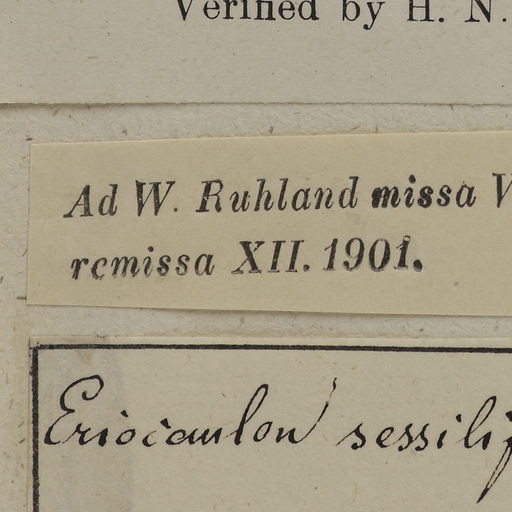 Verified by H. N.
Ad W. Ruhland missa V
remissa XII. 1901.
Eriocaulon sessilif